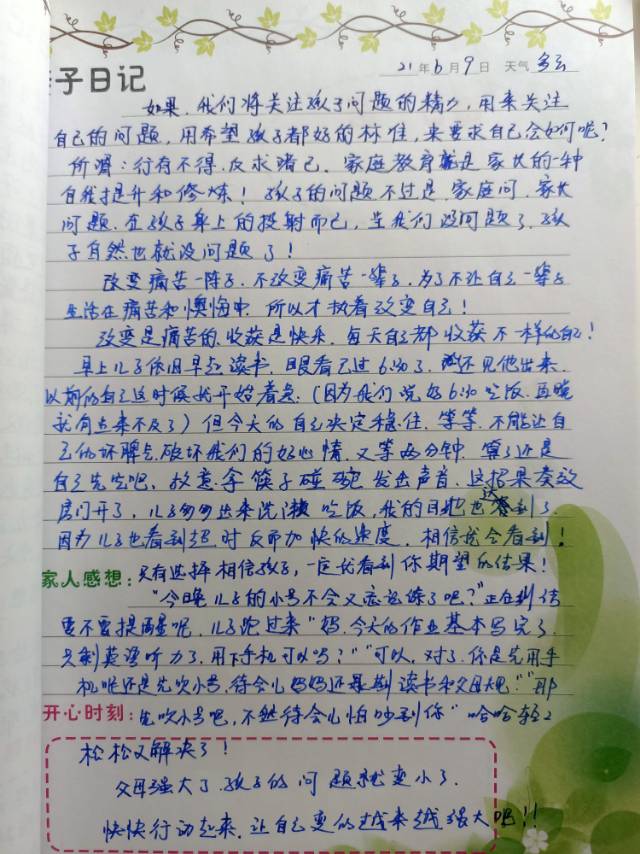 子日记
21年6月9日 天气 多云
如果,我们将关注孩子问题的精力,用来关注
自己的问题,用希望孩子都好的标准,来要求自己会如何呢?
所谓:行有不得.反求诸己.家庭教育就是家长的一种
自我提升和修炼!孩子的问题不过是.家庭问.家长
问题.在孩子身上的投射而已,当我们没问题了.孩
子自然也就没问题了!
改变痛苦一阵子.不改变痛苦一辈子.为了不让自己一辈子
生活在痛苦和懊悔中.所以才执着改变自己!
改变是痛苦的.收获是快乐.每天自己都收获不一样的自己!
早上儿子依旧早起读书.眼看已过6:30了.还不见他出来.
以前的自己这时候就开始着急.(因为我们说好6:30吃饭.再晚
就有点来不及了)但今天的自己决定稳住.等等.不能让自
己的坏脾气破坏我们的好心情.又等两分钟.算了还是
自己先吃吧.故意拿筷子碰碗发出声音.这招果奏效
房门开了.儿子匆匆出来洗漱吃饭,我的目的也达到了.
因为儿子也看到超时反而加快的速度.相信就会看到!
家人感想:只有选择相信孩子,一定就看到你期望的结果!
"今晚儿子的小号不会又忘记练了吧?"正在纠结
要不要提醒呢.儿子跑过来"妈.今天的作业基本写完了.
只剩英语听力了.用下手机可以吗?""可以.对了.你是先用手
机呢还是先吹小号,待会儿妈妈还要读书和父母大也""那
开心时刻:先吹小号吧,不然待会儿怕吵到你"哈哈轻
松松又解决了!
父母强大了.孩子的问题就变小了.
快快行动起来.让自己变的越来越强大吧!!